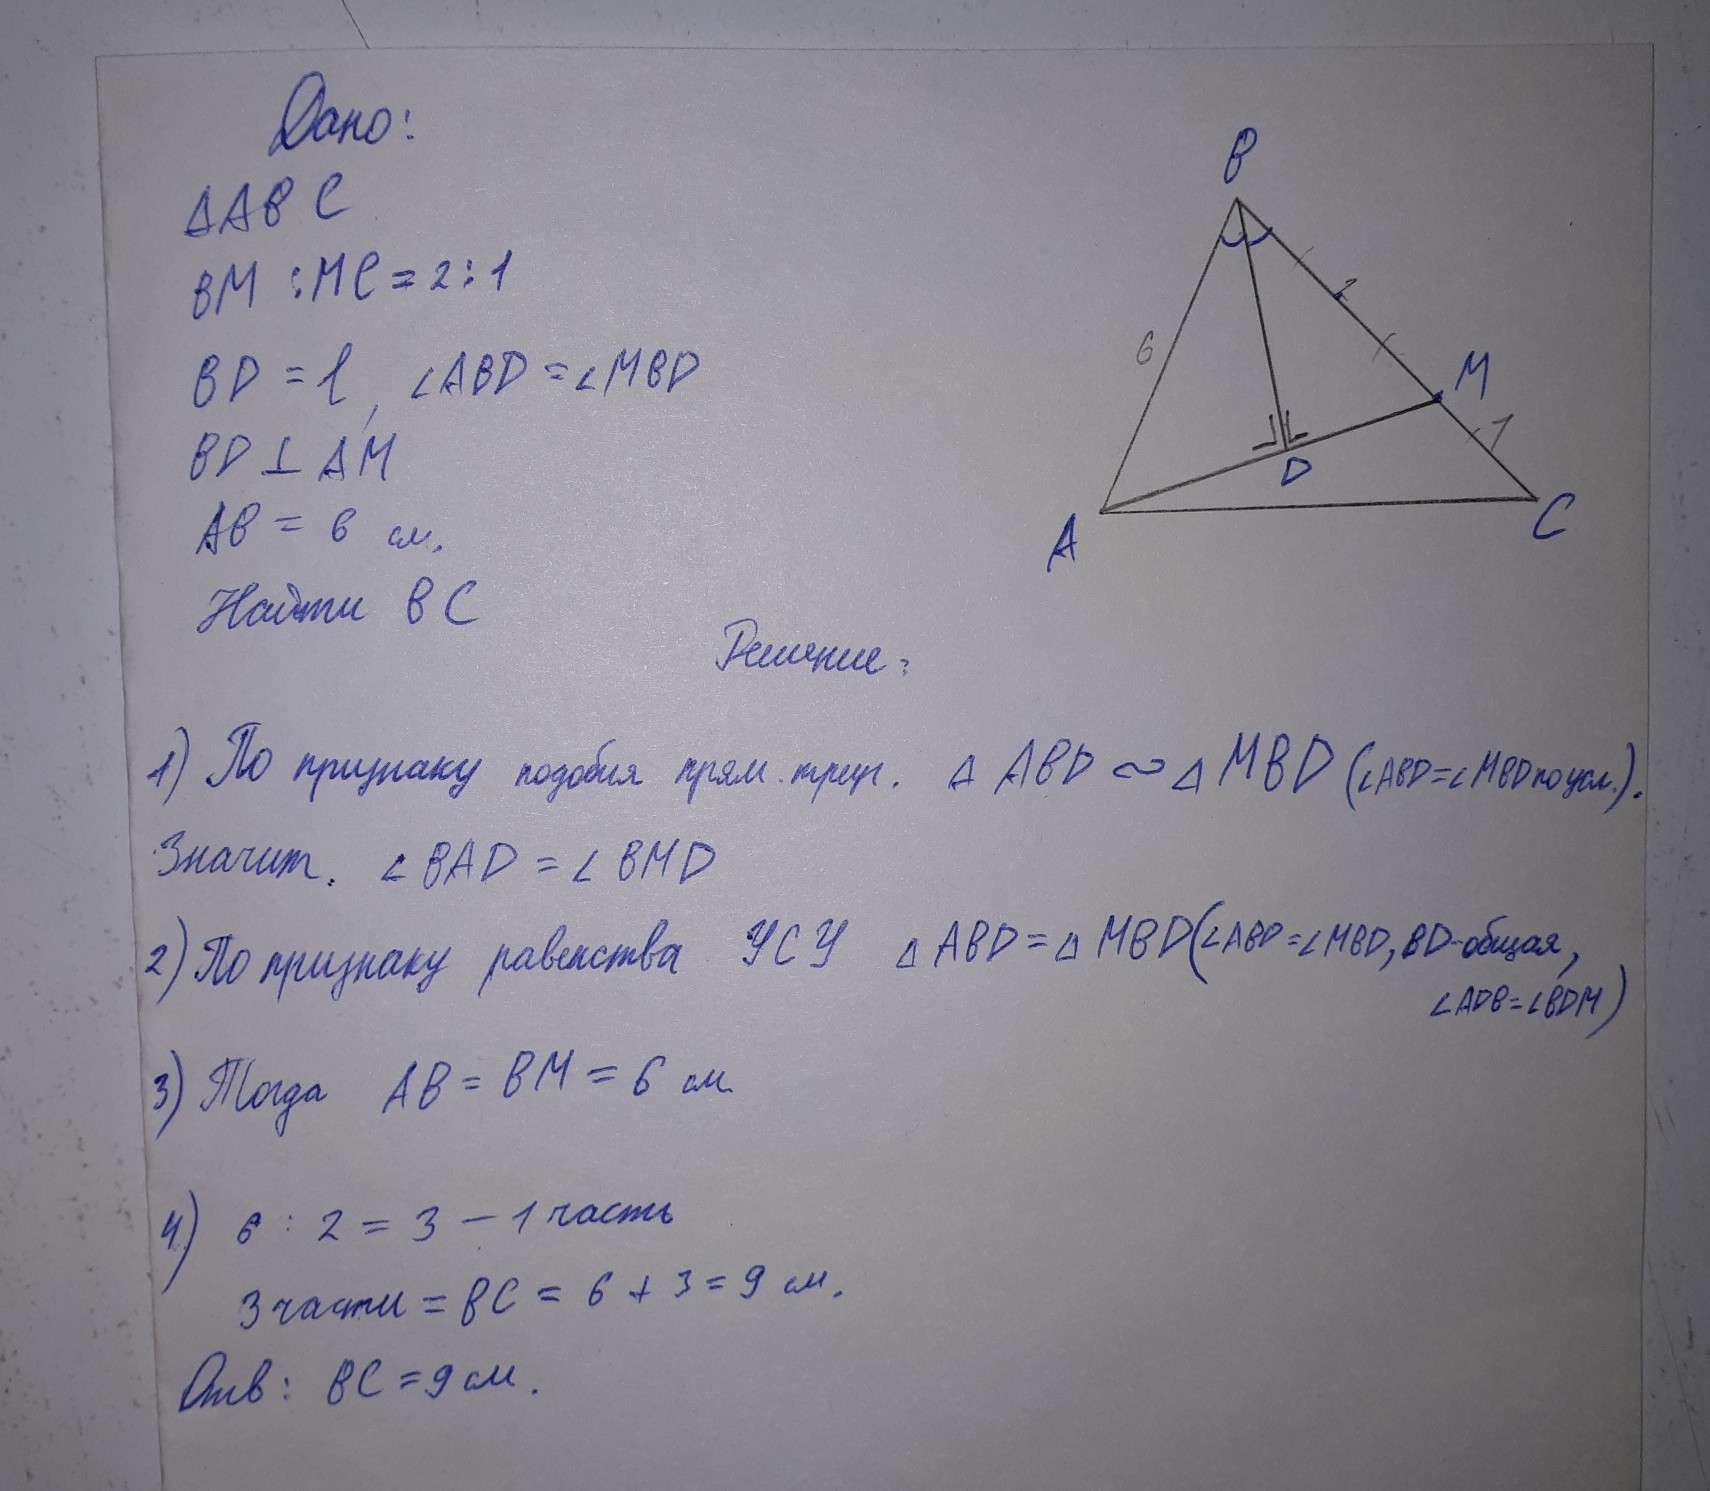 Дано:
△ABC
BM : MC = 2 : 1
BD = l, ∠ABD = ∠MBD
BD ⊥ AM
AB = 6 см.
Найти BC
B
6
2
M
1
D
A
C
Решение:
1) По признаку подобия прям. треуг. △ ABD ∼ △ MBD (∠ABD=∠MBD по усл.).
Значит. ∠BAD = ∠BMD
2) По признаку равенства УСУ △ABD = △MBD (∠ABD=∠MBD, BD-общая,
∠ADB=∠BDM)
3) Тогда AB = BM = 6 см.
4) 6 : 2 = 3 – 1 часть
3 части = BC = 6 + 3 = 9 см.
Отв: BC = 9 см.